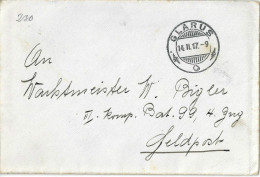 210
GLARUS
14.II.17.-9
An
Wachtmeister W. Bigler
VI. Komp. Bat. 99, 4. Zug
Feldpost